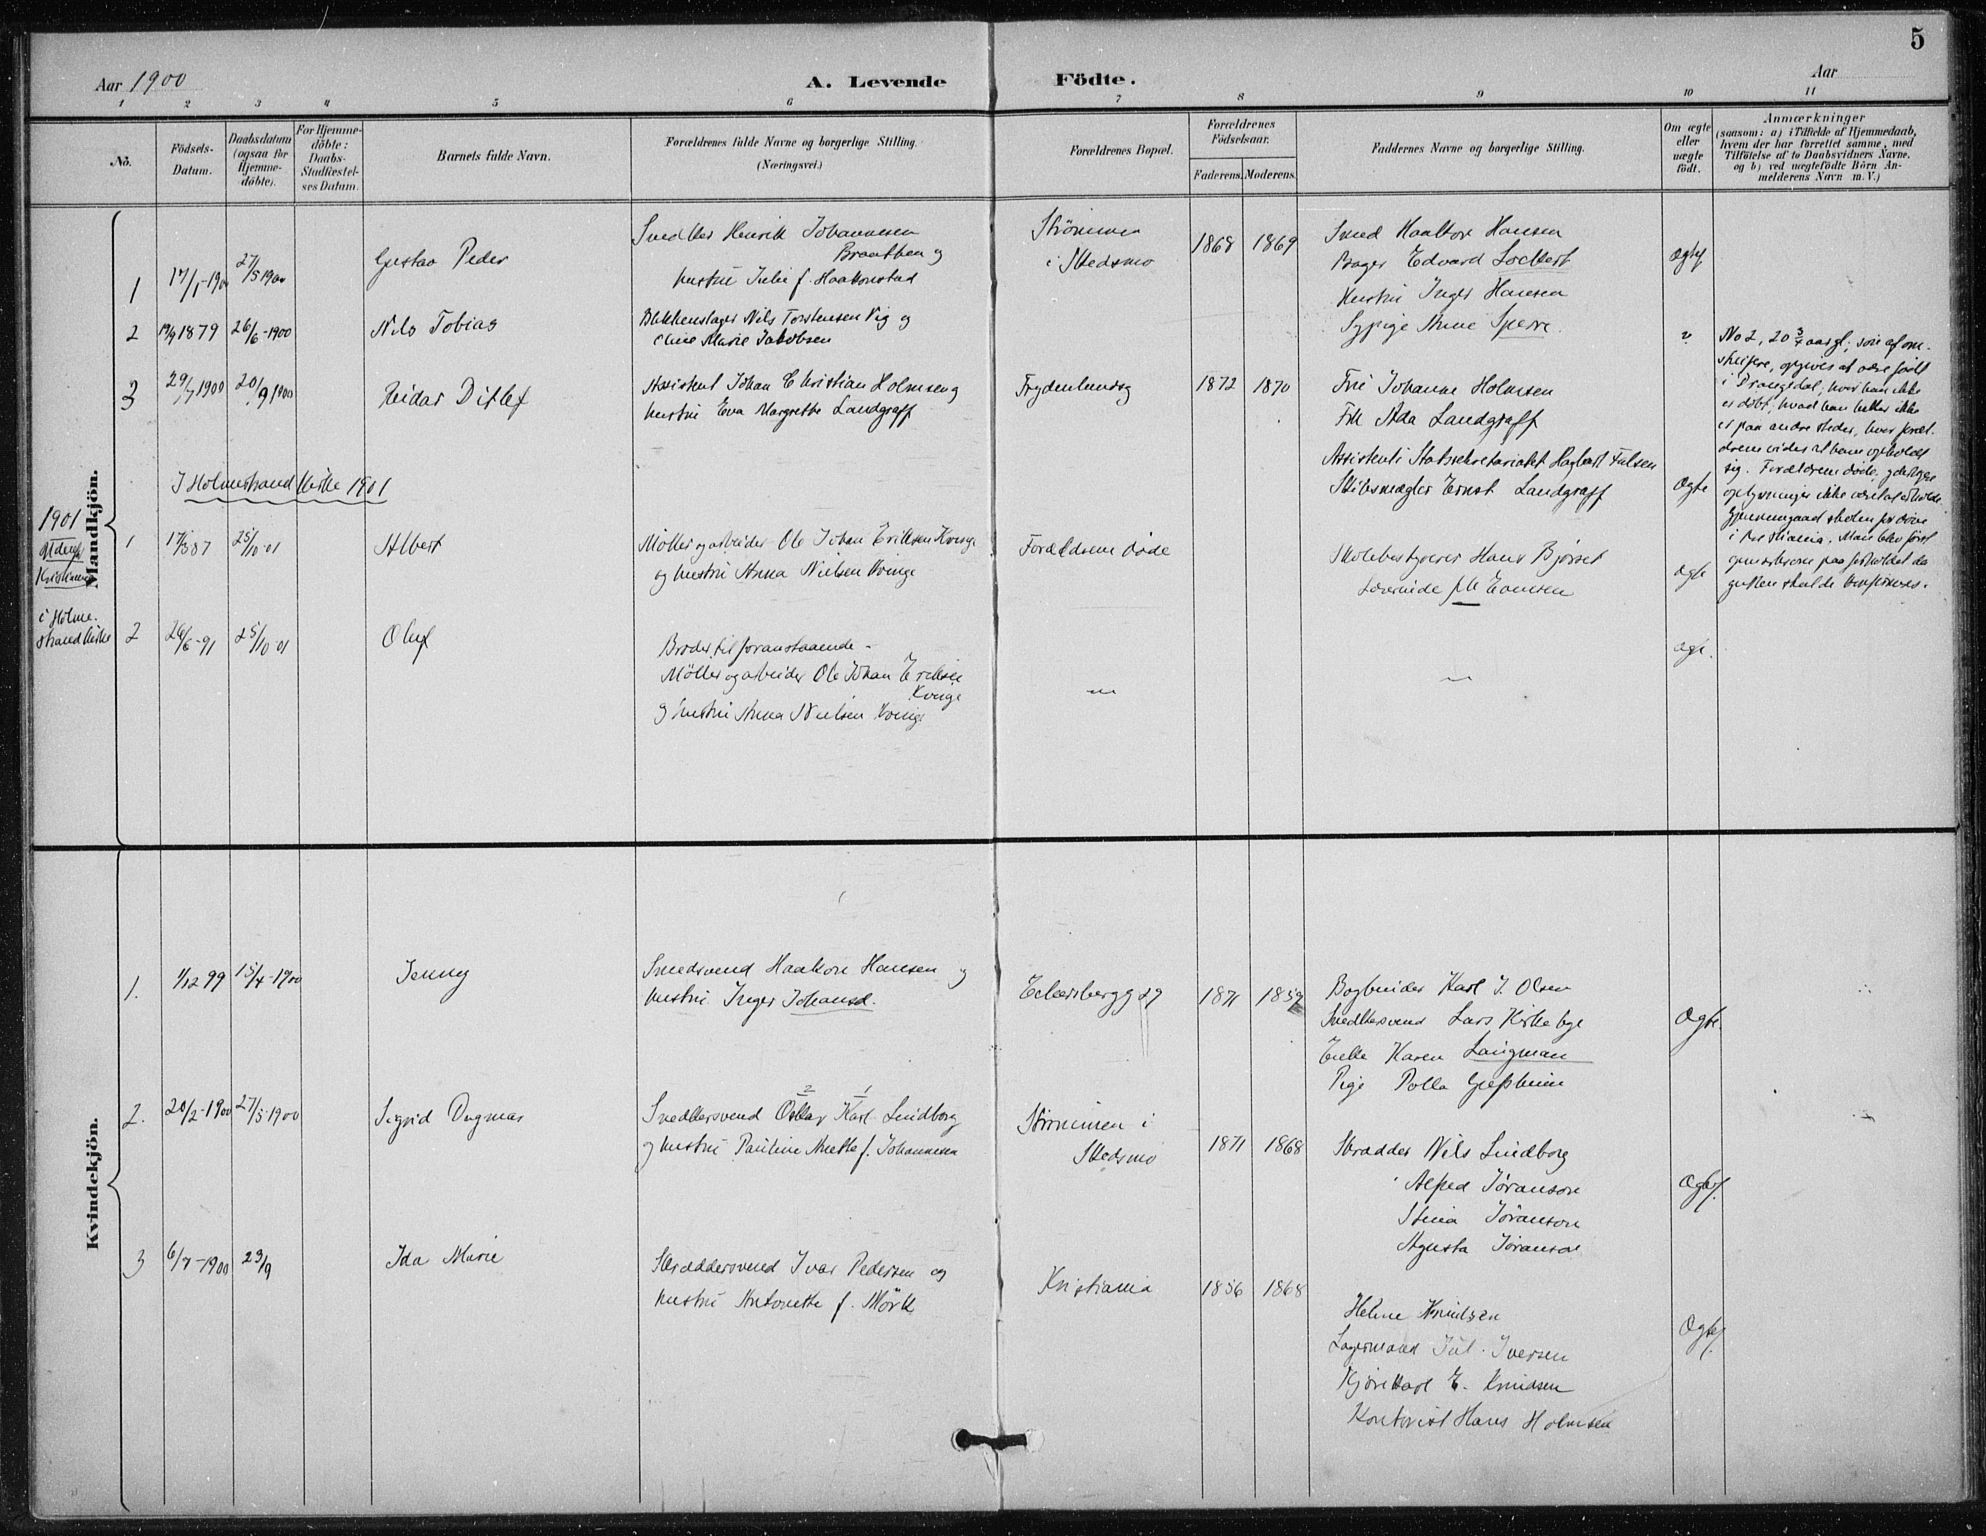 5
Aar 1900
A. Levende Födte.
Aar
1 2 3 4 5 6 7 8 9 10 11
No.
Födsels-
Datum.
Daabsdatum
(ogsaa for
Hjemme-
döbte).
For Hjemme-
döbte:
Daabs-
Stadfæstel-
ses Datum.
Barnets fulde Navn.
Forældrenes fulde Navne og borgerlige Stilling.
(Næringsvei.)
Forældrenes Bopæl.
Forældrenes
Födselsaar.
Faderens. Moderens.
Faddernes Navne og borgerlige Stilling.
Om ægte
eller
uægte
födt.
Anmærkninger
(saasom: a) i Tilfælde af Hjemmedaab,
hvem der har forrettet samme, med
Tilföielse af to Daabsvidners Navne,
og b) ved uægtefödte Börn An-
melderens Navn m. V.)
Mandkjön.
1
17/1-1900
27/5 1900
Gustav Peder
Snedker Henrik Johannesen
Braathen og
hustru Julie f. Haakonstad
Strömmen
i Skedsmo
1868 1869
Smed Haakon Hansen
Bager Edvard Lockert
Hustru Inger Hansen
Sypige Anne Sperre.
Ægte
2
19/9 1879
26/6-1900
Nils Tobias
Blikkenslager Nils Torstensen Vig og
Marie Jakobsen
No 2, 20 3/4 aar gl.
opgives at være födt
i Drangedal, hvor han ikke
er döbt, hvad han heller ikke
er paa andre steder, hvor foræl-
drene vides at have opholdt
sig. Forældrene döde,
oplysninger ikke
skolen for döve
i Kristiania. Man blev först
opmærksom paa forholdet da
gutten skulde konfirmeres.
3
29/7 1900
20/9 1900
Reidar Ditlef
Assistent Johan Christian Holmsen og
hustru Eva Margrethe Landgraff
Frydenlundsg
1872 1870
Fru Johanne Holmsen
Frk Ada Landgraff
Assistent i Statssekretariatet Hagbart Falsen
Skibsmægler Ernst Landgraff
Ægte
I Holmestrand Kirke 1901
1901
Kristiania
i Holme-
strand kirke
1
17/3 87
25/10-01
Albert
Möller og arbeider Ole Johan Eriksen Kvinge
og hustru Anna Nielsen Kvinge
Forældrene döde
Skolebestyrer Hans Bjørset
Lærerinde frk Evensen
Ægte
2
26/6-91
25/10-01
Oluf
Broder til foranstaaende -
Möller og arbeider Ole Johan Eriksen
Kvinge
og hustru Anna Nielsen Kvinge
Ægte.
Kvindekjön.
1.
1/12 99
15/4-1900
Jenny
Smedsvend Haakon Hansen og
hustru Inger Johansd.
Eckersbergg 29
1871 1859
Bogbinder Karl J. Olsen
Snedkersvend Lars Kirkeby
Enke Karen Langman
Pige Polla
Ægte.
2.
20/2-1900
27/5-1900
Sigrid Dagmar
2 1
Snedkersvend Oskar Karl Lindborg
og hustru Pauline Anette f. Johannesen
Strömmen i
Skedsmo
1871 1868
Skrædder Nils Lindborg
Alfred Jöranson
Stina Jöranson
Agusta Jöranson
Ægte.
3
6/7-1900
23/9
Ida Marie
Skræddersvend Ivar Pedersen og
hustru Antonette f. Mörk
Kristiania
1856 1868
Helene Knudsen
Lagermand Jul. Iversen
Kjörekarl E. Knudsen
Kontorist Hans Holmsen
Ægte.